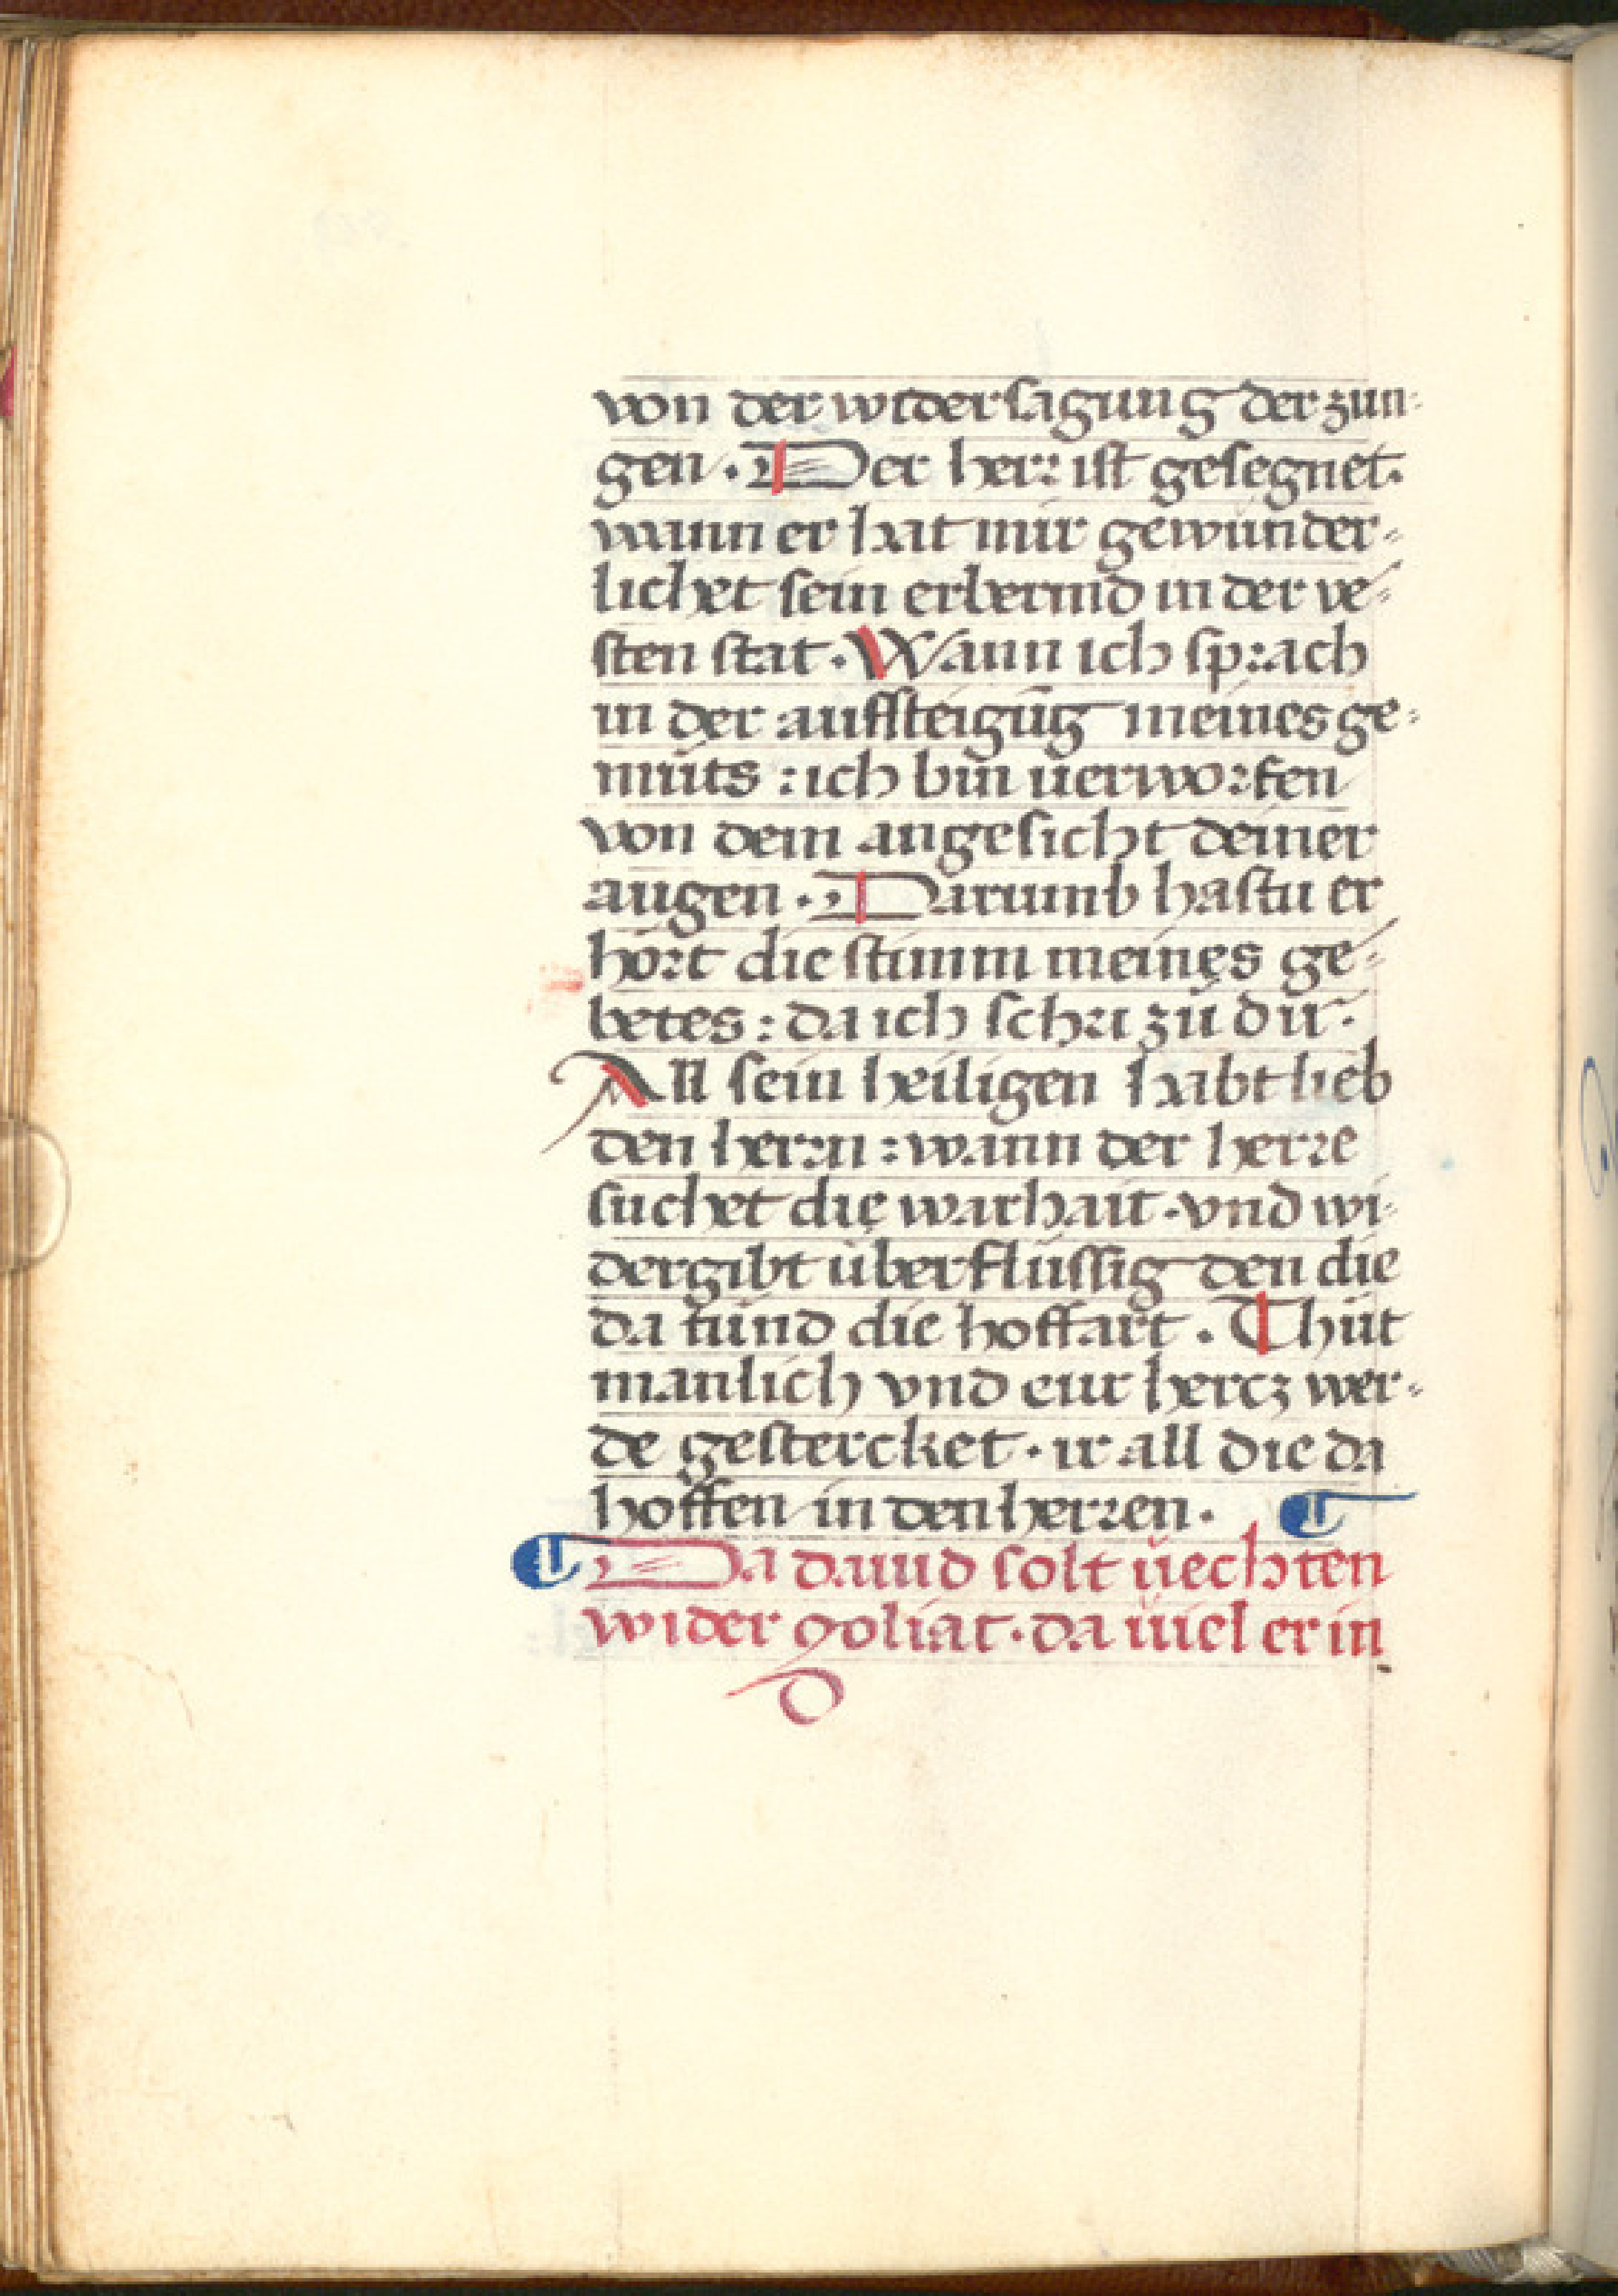 von der widersagung der zun-
gen · Der herr ist gesegnet·
wann er hat mir gewunder-
lichet sein erbermd in der ve-
sten stat · Wann ich sprach
in der auffsteigūg meines ge-
müts : ich bin verworfen
von dem angesicht deiner
augen · Darumb hastu er
hört die stimm meines ge-
betes : da ich schri zů dir·
All sein heiligen habt lieb
den herrn : wann der herre
suchet die warhait · vnd wi-
dergibt überflüssig den die
da tünd die hoffart · Thüt
manlich vnd eur hercz wer-
de gestercket · ir all die da
hoffen in den herren ·
Da dauid solt vechten
wider goliat · da viel er in